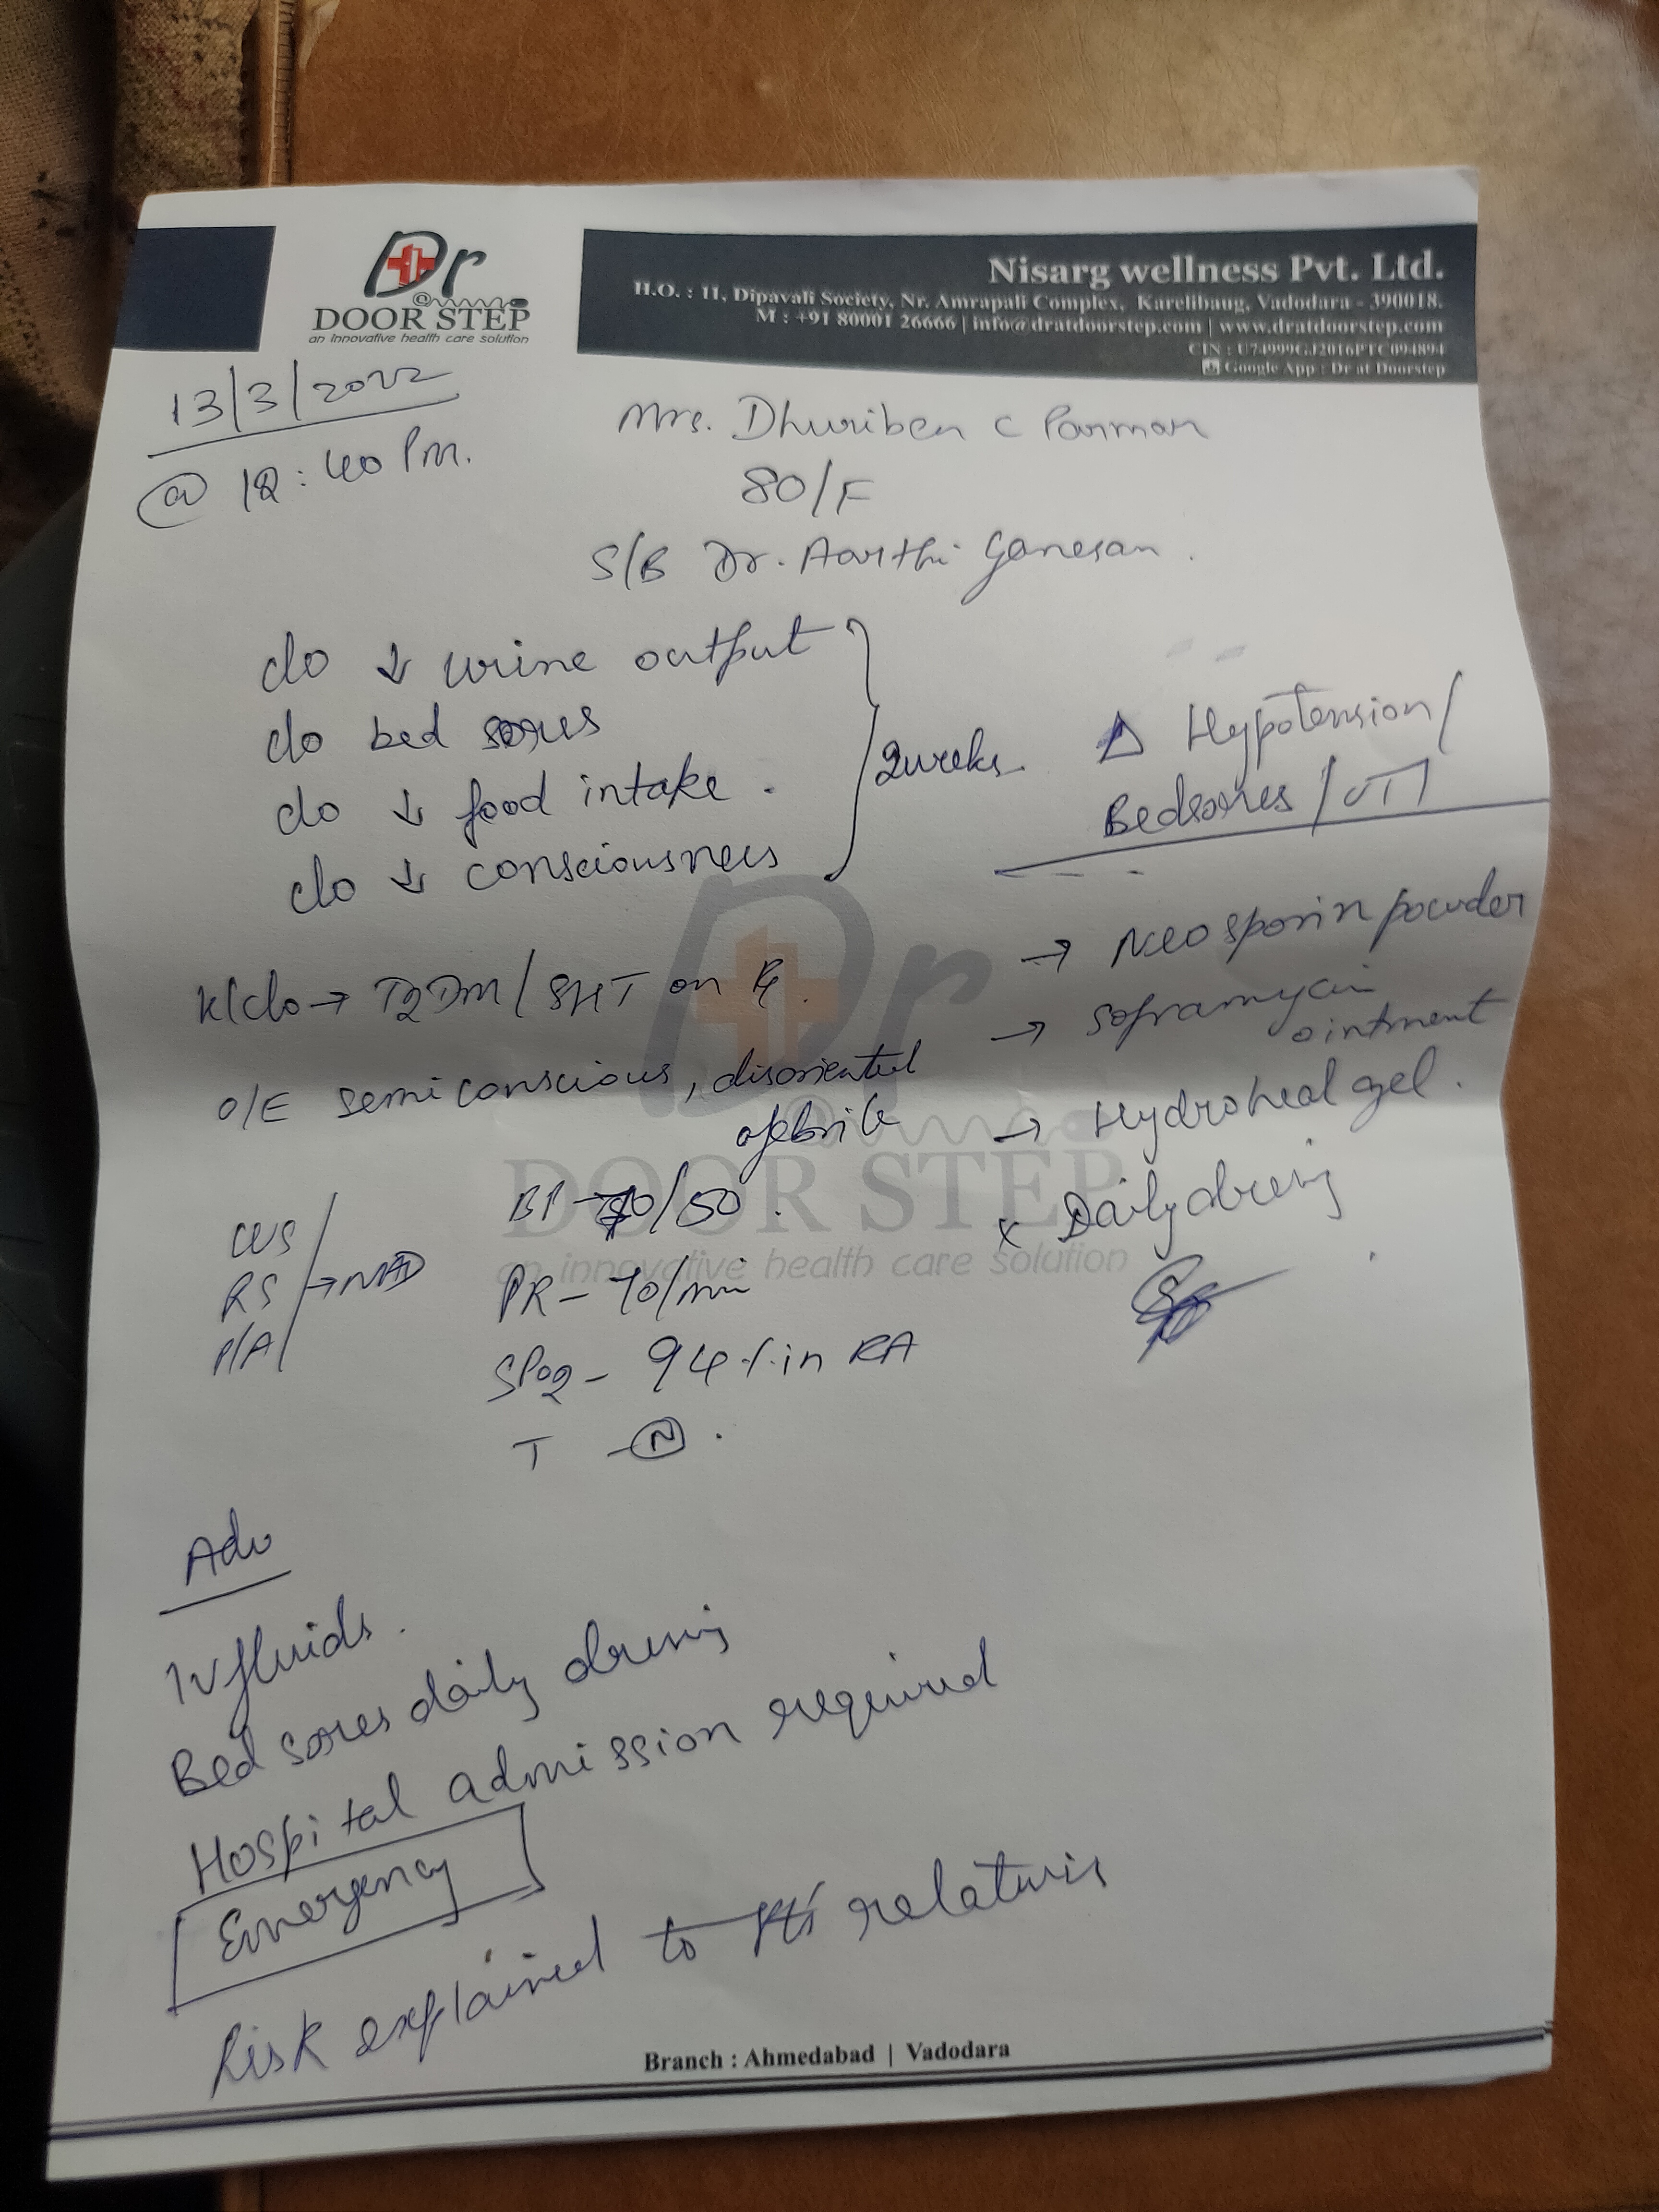 Dr
@
DOOR STEP
an innovative health care solution
Nisarg wellness Pvt. Ltd.
H.O. : 11, Dipavali Society, Nr. Amrapali Complex, Karelibaug, Vadodara - 390018.
M : +91 80001 26666 | info@dratdoorstep.com | www.dratdoorstep.com
CIN : U74999GJ2016PTC094894
Google App : Dr at Doorstep
13/3/2022
@ 12:40 Pm.
Mrs. Dhuriben C Parmar
80/F
S/B Dr. Aarthi Ganesan.
c/o ↓ urine output
c/o bed sores
c/o ↓ food intake.
c/o ↓ consciousness
2 weeks.
Δ Hypotension/
Bedsores/UTI
K/c/o → T2DM/SHT on Rx.
O/E semiconscious, disoriented
afebrile
BP - /50.
PR - 70/min
SPO2 - 94% in RA
T - N.
CVS
RS → NAD
P/A
→ Neosporin powder
→ Soframycin
ointment
→ Hydroheal gel.
x Daily dressing
Dr
@
DOOR STEP
an innovative health care solution
Adv
IV fluids.
Bed sores daily dressing
Hospital admission required
Emergency
Risk explained to relatives
Branch : Ahmedabad | Vadodara